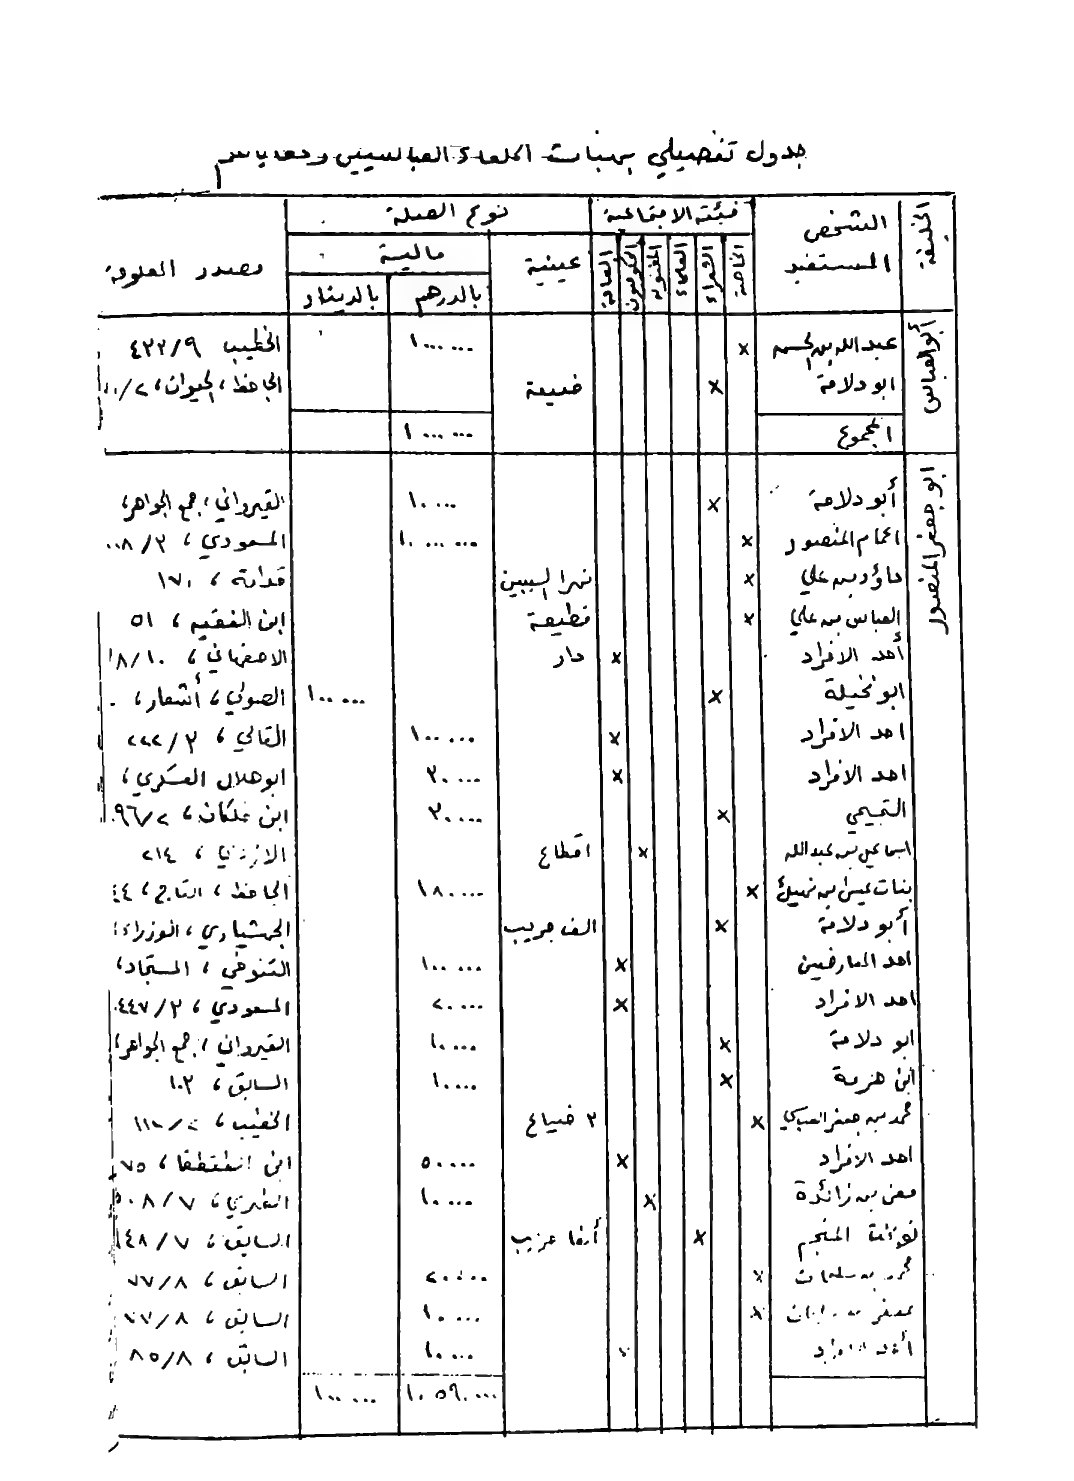 جدول تفصيلي بهبات الخلفاء العباسيين وعطاياهم
الخليفة الشخص المستفيد فئته الاجتماعية نوع الصلة مصدر المعلومة
الخاصة الشعراء العلماء المغنون الحكوميون العامة عينية مالية
بالدرهم بالدينار
أبو العباس عبد الله بن الحسن × ١٠٠٠٠٠٠ الخطيب ٩/٤٣٢
ابو دلامة × ضيعة الجاحظ، الحيوان، ٢/
المجموع ١٠٠٠٠٠٠
ابو جعفر المنصور أبو دلامة × ١٠٠٠٠ القيرواني، جمع الجواهر،
اعمام المنصور × ١٠٠٠٠٠٠٠ المسعودي، ٣/
داؤد بن علي × نهر السيبين قدامة، ١٧٠
العباس بن علي × قطيعة ابن الفقيه، ٥١
أحد الافراد × دار الاصفهاني، ١٠/
ابو نخيلة × ١٠٠٠٠٠ الصولي، أشعار،
احد الافراد × ١٠٠٠٠٠ القالي، ٣/٢٢٢
احد الافراد × ٣٠٠٠٠ ابو هلال العسكري،
التميمي × ٣٠٠٠٠ ابن خلكان، ٢/٩٦
اسماعيل بن عبد الله × اقطاع الازدي، ٢١٤
بنات عيسى بن نهيك × ١٨٠٠٠٠ الجاحظ، التاج، ٤٤
أبو دلامة × الف جريب الجهشياري، الوزراء،
احد المعارضين × ١٠٠٠٠٠ التنوخي، المستجاد،
احد الافراد × ٢٠٠٠٠ المسعودي، ٣/٤٤٧
ابو دلامة × ١٠٠٠٠ القيرواني، جمع الجواهر،
ابن هرمة × ١٠٠٠٠ السابق، ١٠٣
محمد بن جعفر العباسي × ٣ ضياع الخطيب، ٢/١١٠
احد الافراد × ٥٠٠٠٠ ابن الطقطقا، ٧٥
معن بن زائدة × ١٠٠٠٠ الطبري، ٧/٥٠٨
المنجم × السابق، ٧/
محمد بن سليمان × ٢٠٠٠٠ السابق، ٨/٧٧
جعفر بن × ١٠٠٠٠ السابق، ٨/٧٧
× ١٠٠٠٠ السابق، ٨/٨٥
١٠٥٩٠٠٠٠ ١٠٠٠٠٠